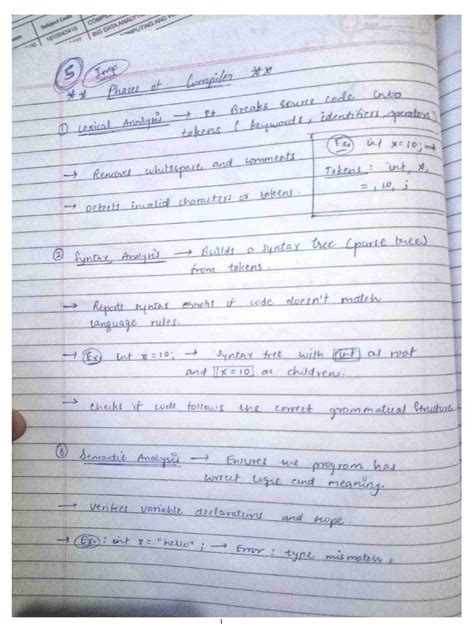 Subject Code
1010043418
BIG DATA ANALYT
COMPUTING AND
5 Imp
** Phases of Compiler **
① Lexical Analysis → It Breaks source code into
tokens ( keywords, identifiers, operators)
→ Removes whitespace and comments.
→ Detects invalid characters or tokens.
Ex: int x=10; →
Tokens : int, x,
=, 10, ;
② Syntax Analysis → Builds a syntax tree (parse tree)
from tokens.
→ Reports syntax errors if code doesn't match
language rules.
→ Ex int x=10; → Syntax tree with [int] as root
and [x=10] as children.
→ checks if code follows the correct grammatical structure
③ Semantic Analysis → Ensures the program has
correct logic and meaning.
→ Verifies variable declarations and scope.
→ Ex: int x = "hello"; → Error: type mismatch.
1